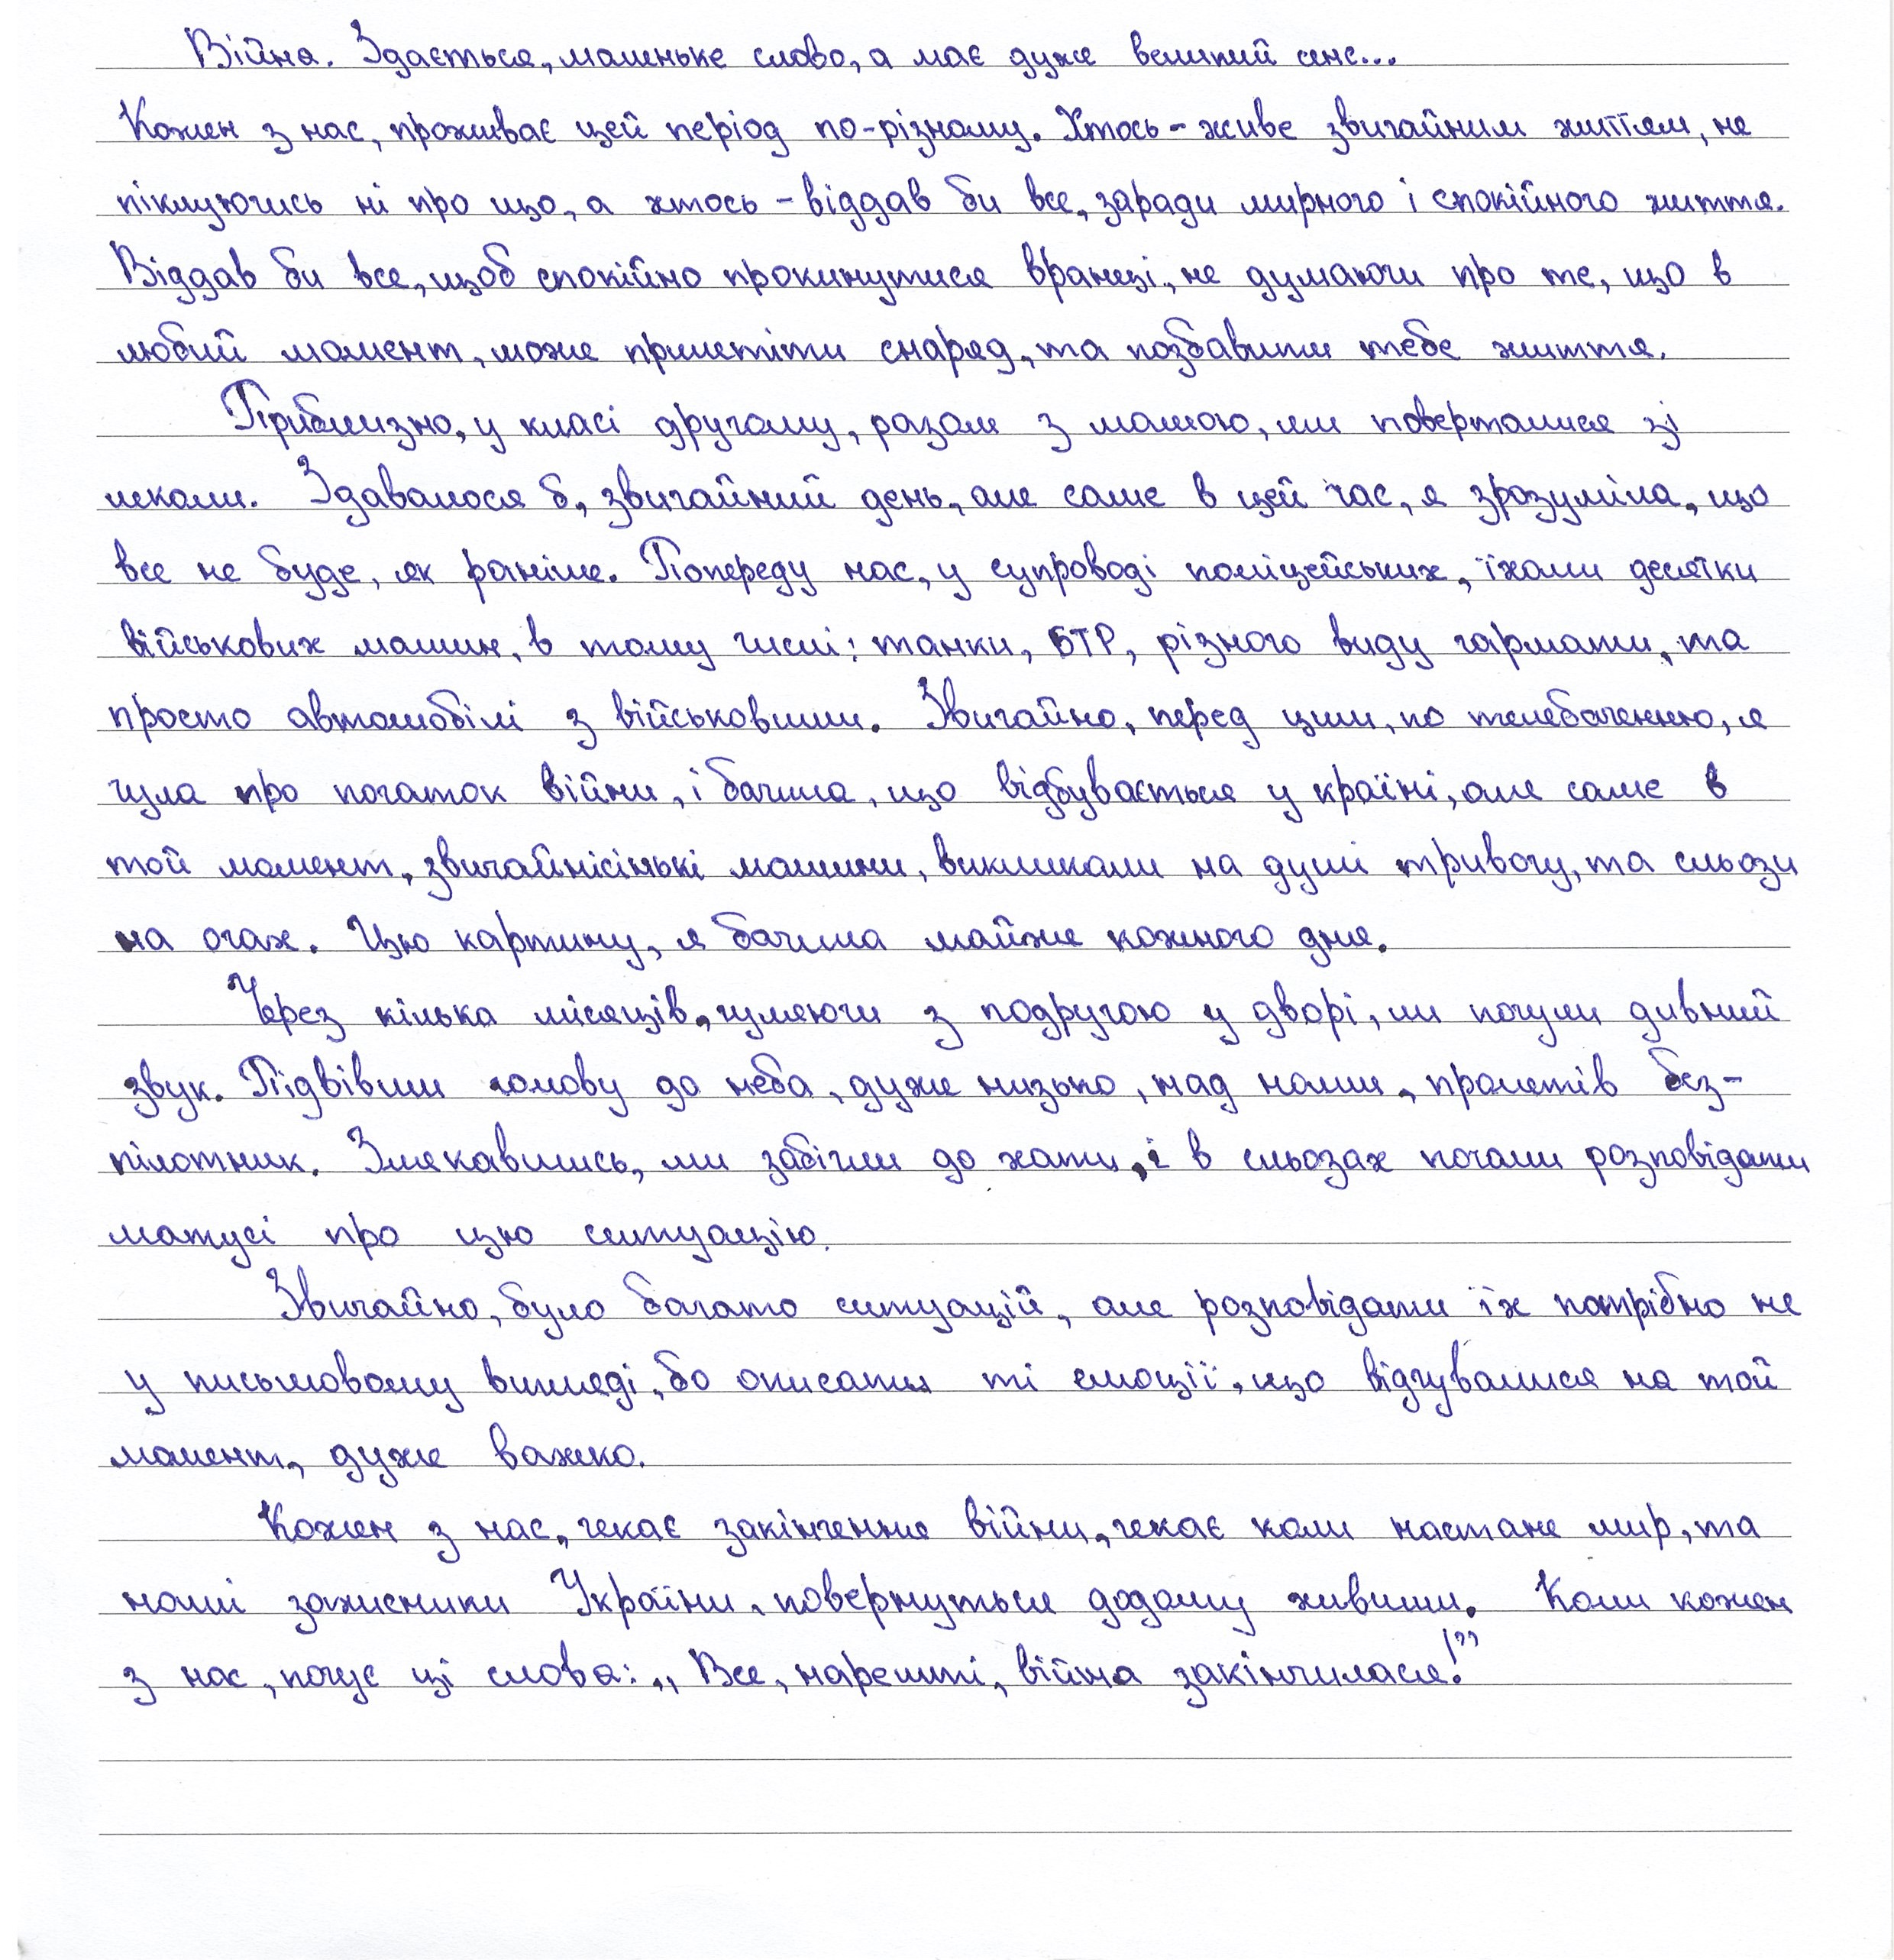 Війна. Здається, маленьке слово, а має дуже великий сенс...
Кожен з нас, проживає цей період по-різному. Хтось - живе звичайним життям, не
піклуючись ні про що, а хтось - віддав би все, заради мирного і спокійного життя.
Віддав би все, щоб спокійно прокинутися вранці, не думаючи про те, що в
любий момент, може прилетіти снаряд, та позбавити тебе життя.
Приблизно, у класі другому, разом з мамою, ми поверталися зі
школи. Здавалося б, звичайний день, але саме в цей час, я зрозуміла, що
все не буде, як раніше. Попереду нас, у супроводі поліцейських, їхали десятки
військових машин, в тому числі: танки, БТР, різного виду гармати, та
просто автомобілі з військовими. Звичайно, перед цим, по телебаченню, я
чула про початок війни, і бачила, що відбувається у країні, але саме в
той момент, звичайнісінькі машини, викликали на душі тривогу, та сльози
на очах. Цю картину, я бачила майже кожного дня.
Через кілька місяців, гуляючи з подругою у дворі, ми почули дивний
звук. Підвівши голову до неба, дуже низько, над нами, пролетів без-
пілотник. Злякавшись, ми забігли до хати, і в сльозах почали розповідати
матусі про цю ситуацію.
Звичайно, було багато ситуацій, але розповідати їх потрібно не
у письмовому вигляді, бо описати ті емоції, що відчувалися на той
момент, дуже важко.
Кожен з нас, чекає закінчення війни, чекає коли настане мир, та
наші захисники України, повернуться додому живими. Коли кожен
з нас, почує ці слова: „Все, нарешті, війна закінчилася!"